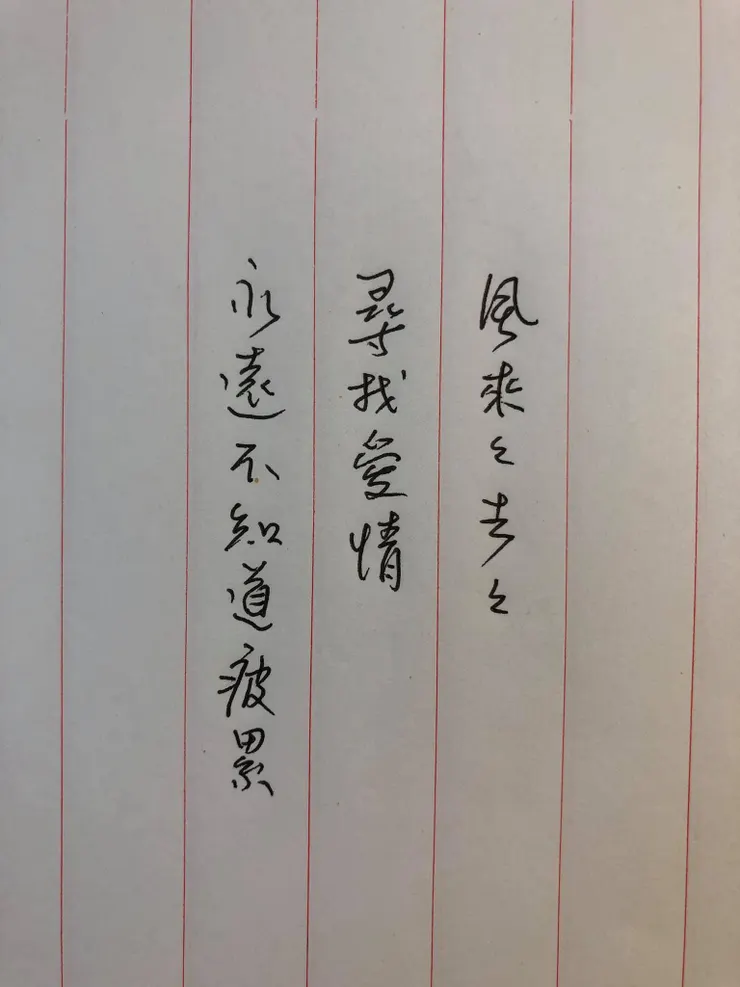 風來々去々
尋找愛情
永遠不知道疲累